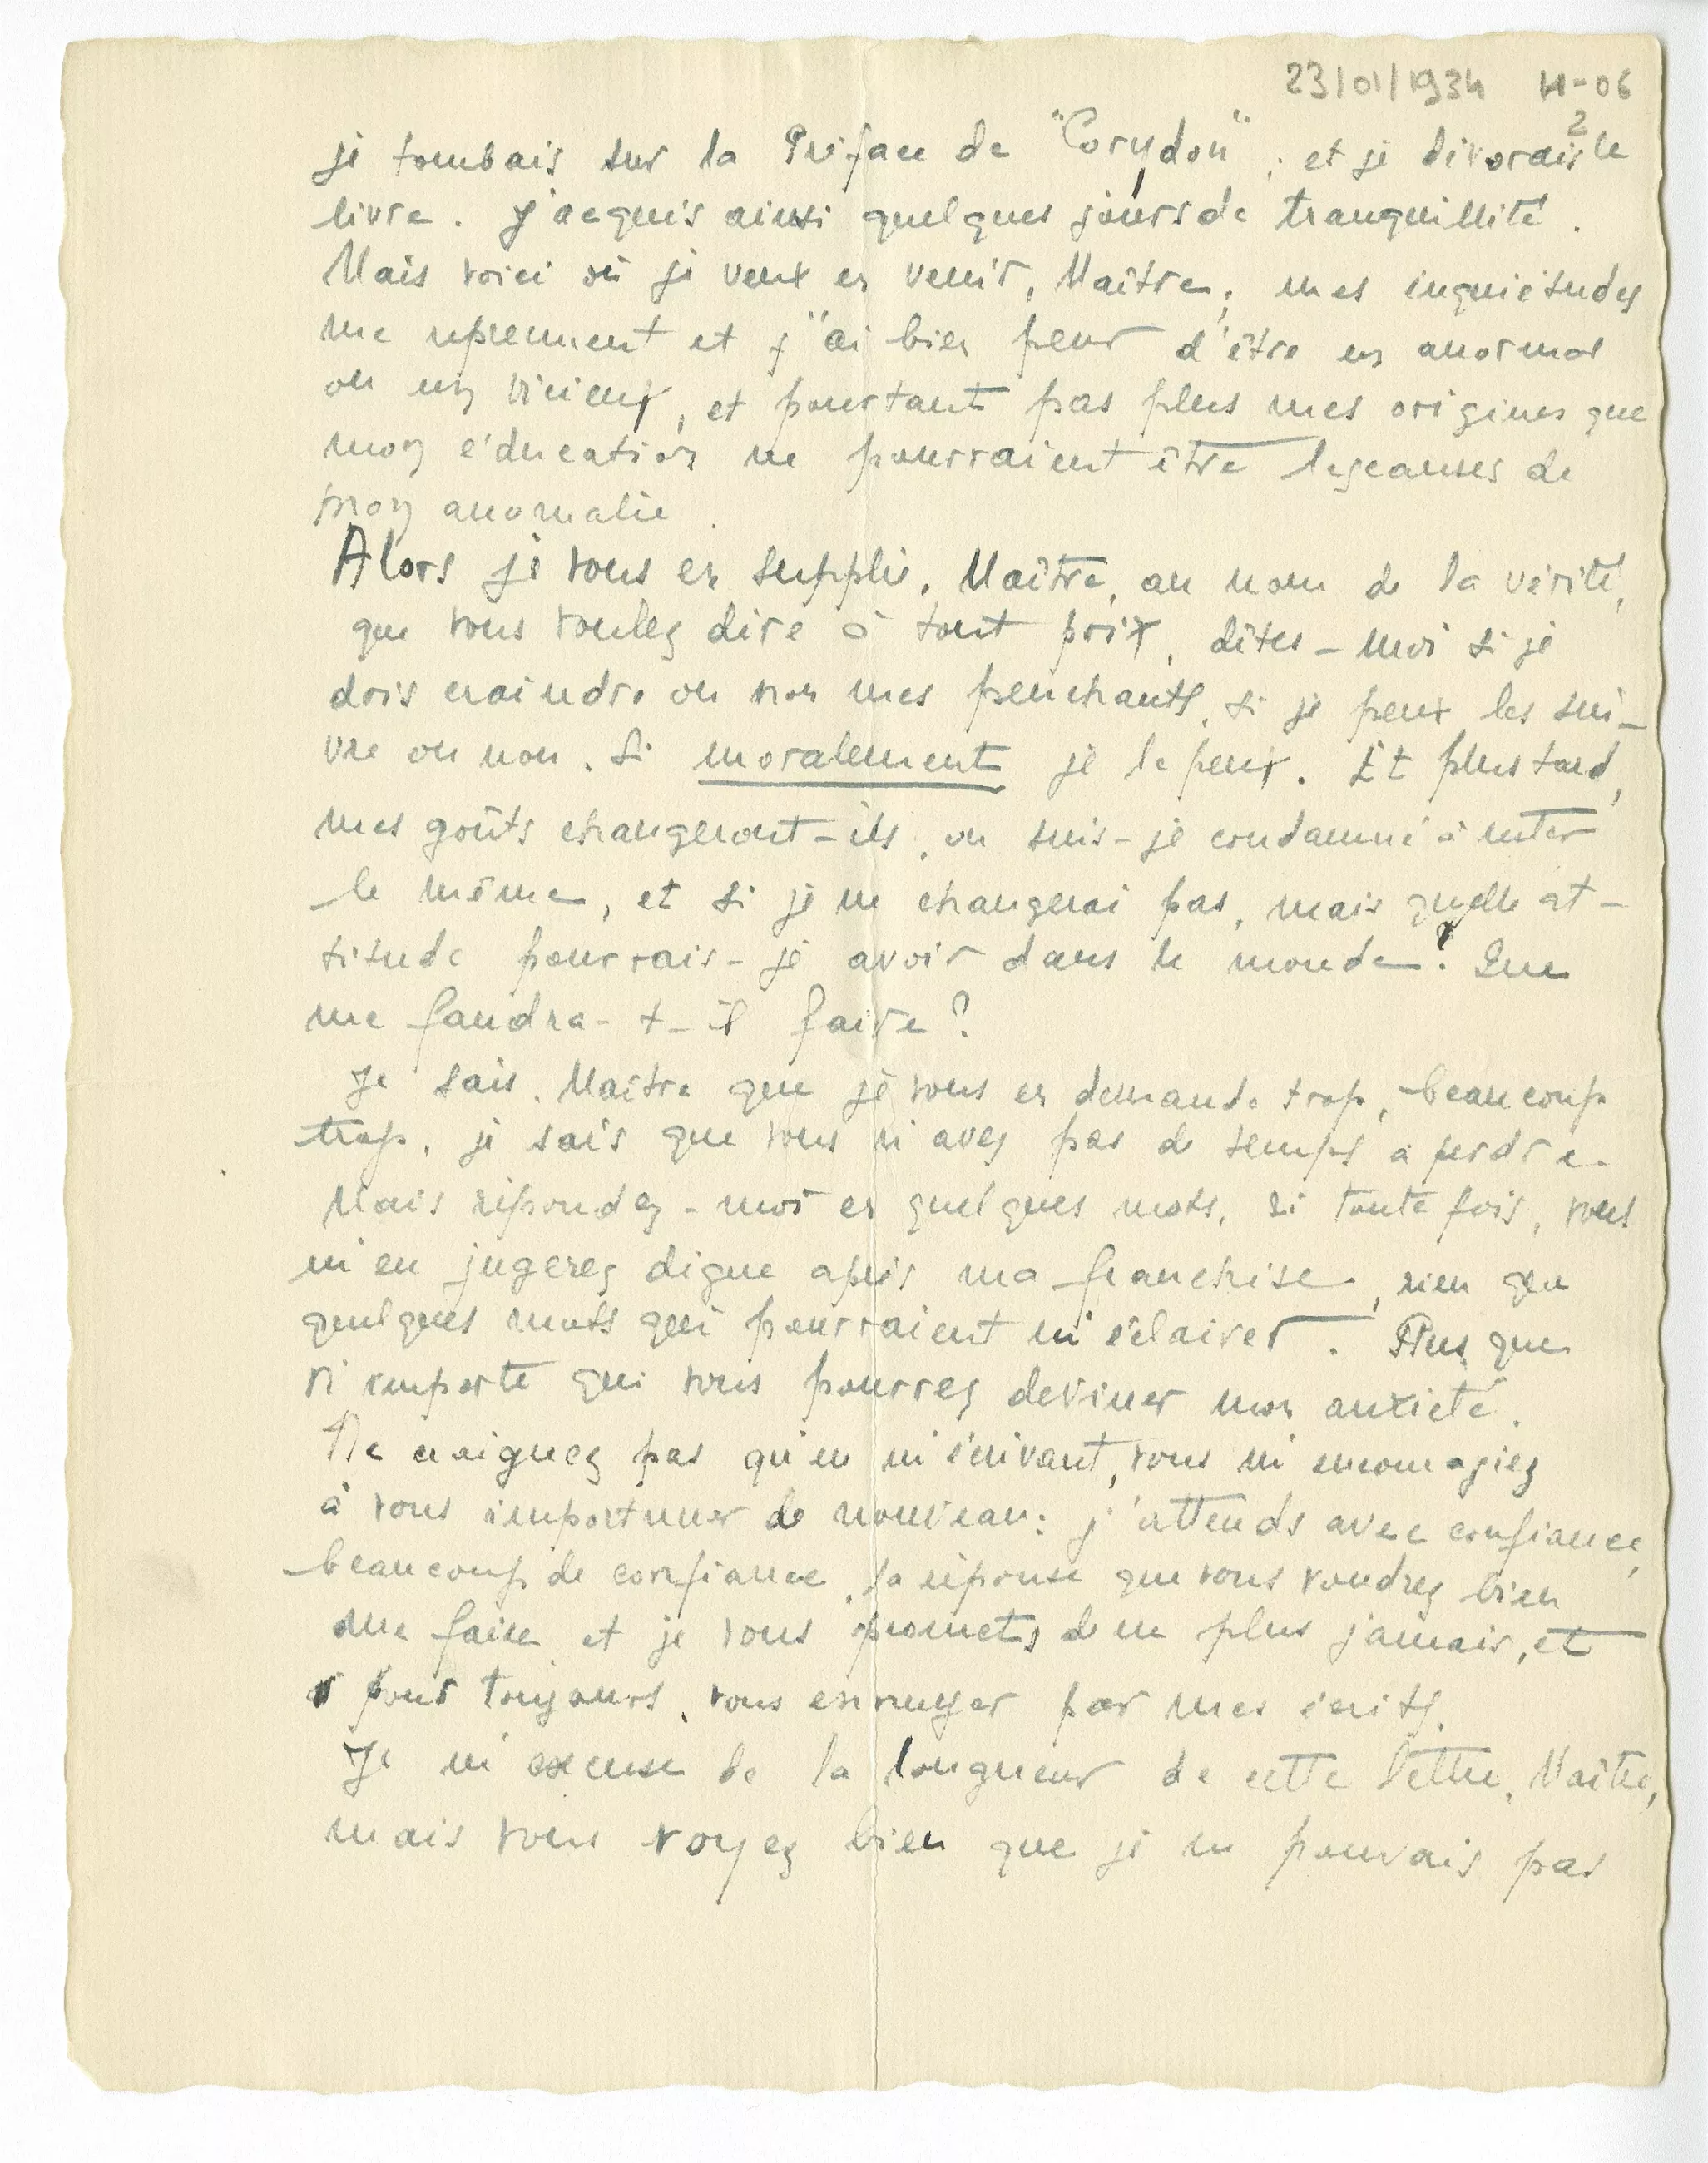 23/01/1934 H-06
2
je tombais sur la Préface de "Corydon", et je dévorais le
livre. J'acquis ainsi quelques jours de tranquillité.
Mais voici où je veux en venir, Maître, mes inquiétudes
me reprennent et j'ai bien peur d'être un anormal
ou un vicieux, et pourtant pas plus mes origines que
mon éducation ne pourraient être les causes de
mon anomalie.
Alors je vous en supplie, Maître, au nom de la vérité,
que vous voulez dire à tout prix, dîtes-moi si je
dois craindre ou non mes penchants, si je peux les sui-
vre ou non. Si moralement je le peux. Et plus tard,
mes goûts changeront-ils, ou suis-je condamné à rester
le même, et si je ne changerai pas, mais quelle at-
titude pourrais-je avoir dans le monde? Que
me faudra-t-il faire?
Je sais, Maître que je vous en demande trop, beaucoup
trop, je sais que vous n'avez pas de temps à perdre.
Mais répondez-moi en quelques mots, si toute fois, vous
m'en jugerez digne après ma franchise, rien que
quelques mots qui pourraient m'éclairer. Plus que
n'importe qui vous pourrez deviner mon anxiété.
Ne craignez pas qu'en m'écrivant, vous m'encouragiez
à vous importuner de nouveau: j'attends avec confiance,
beaucoup de confiance, la réponse que vous voudrez bien
me faire et je vous promets de ne plus jamais, et
pour toujours, vous ennuyer par mes écrits.
Je m'excuse de la longueur de cette lettre, Maître,
mais vous voyez bien que je ne pouvais pas